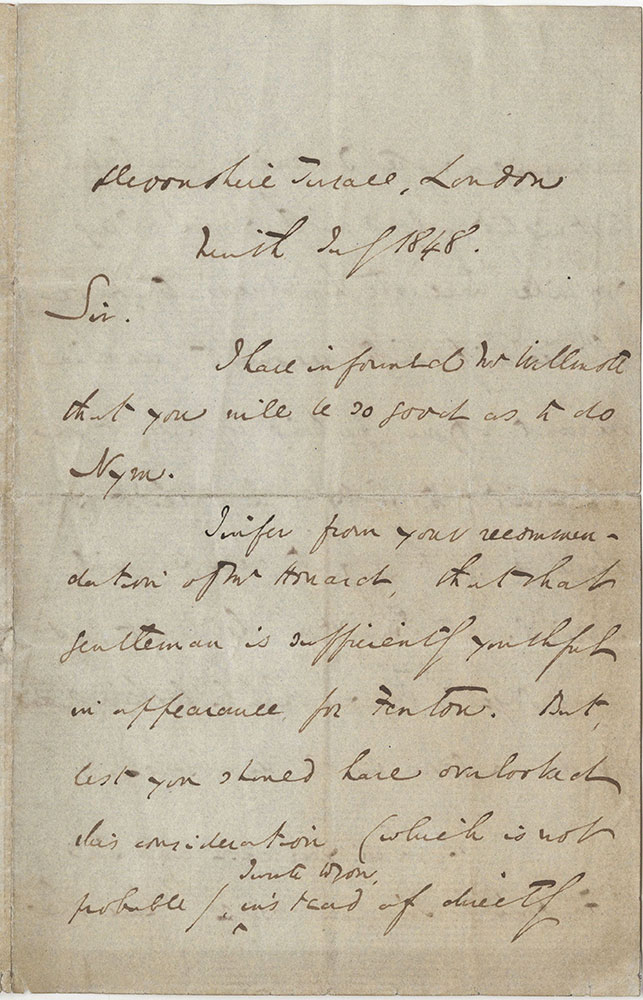 Devonshire Terrace, London
Ninth July 1848.
Sir.
I have informed Mr Willmott
that you will be so good as to do
Nym.
I infer from your recommen-
dation of Mr Howard, that that
gentleman is sufficiently youthful
in appearance for Fenton. But,
lest you should have overlooked
this consideration (which is not
I write to you,
probable), instead of directly